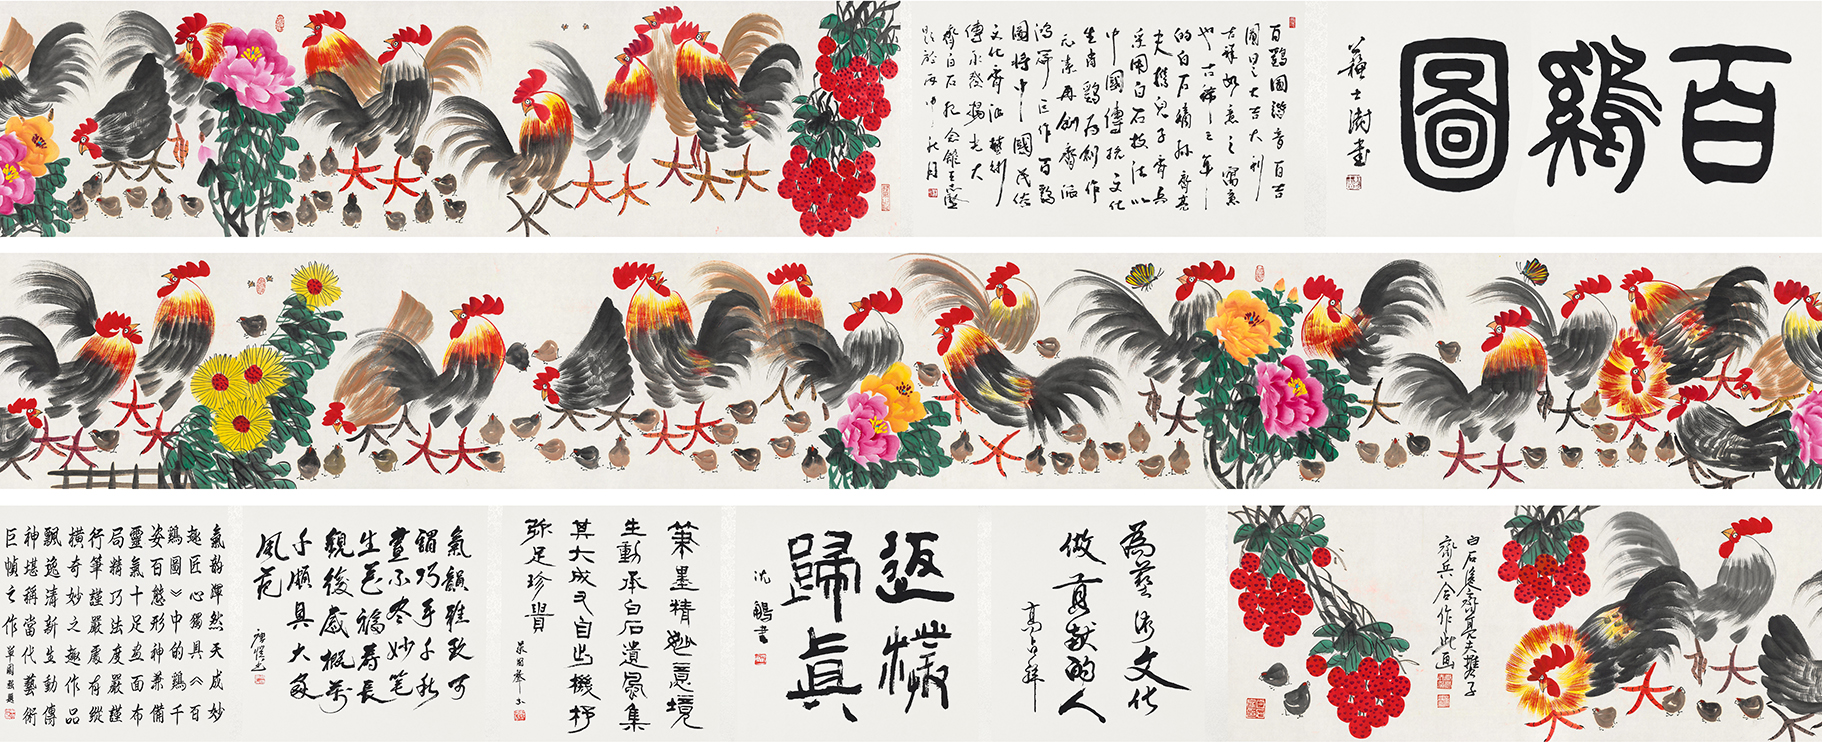 百鷄圖
蘇士澍書
百鷄圖諧音百吉
圖曰之大吉大利
吉祥如意之寓意
也古稀之年
的白石嫡孫齊
夫携兒子齊兵
采用白石技法以
中國傳統文化
生肖鷄為創作
元素再創齊派
鴻篇巨作百鷄
圖将中國民俗
文化齊派藝術
傳承發揚光大
齊白石紀念館王志
題於丙申秋月
白石後裔齊夫攜子
齊兵合作此画
為藝術文化
做貢献的人
高占祥
返樸
歸真
沈鵬書
筆墨精妙意境
生動承白石遺風集
其大成又自出機杼
弥足珍貴
氣韻雅致可
謂巧手千秋
畫不尽妙笔
生花福壽長
觀後感概萬
千頗具大家
風范
氣韵渾然天成妙
趣匠心獨具《百
鷄圖》中的鷄千
姿百態形神兼備
靈氣十足画面布
局精巧法度嚴謹
行筆謹嚴處有縱
横奇妙之趣作品
飄逸清新生動傳
神堪稱當代藝術
巨幀之作 單國強題